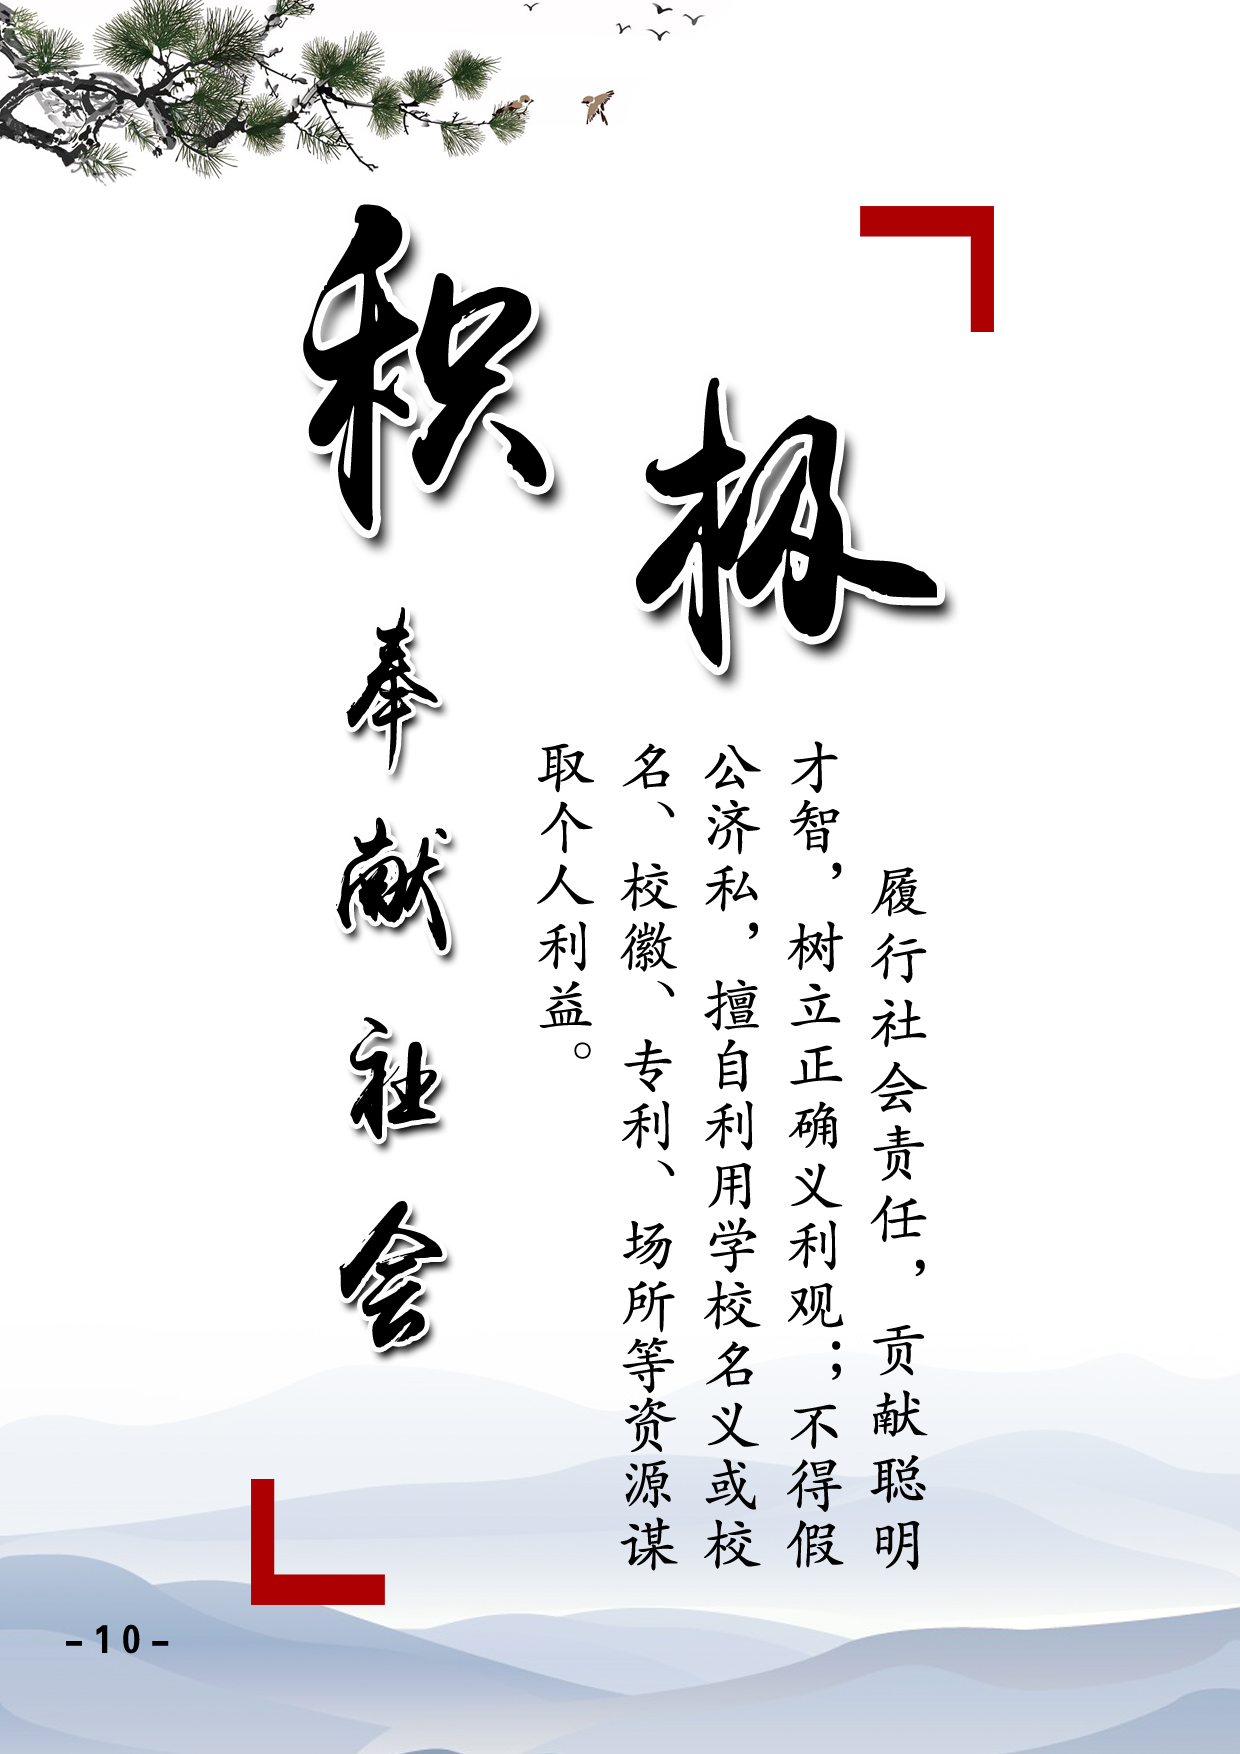 积极
奉献社会
履行社会责任，贡献聪明
才智，树立正确义利观；不得假
公济私，擅自利用学校名义或校
名、校徽、专利、场所等资源谋
取个人利益。
-10-